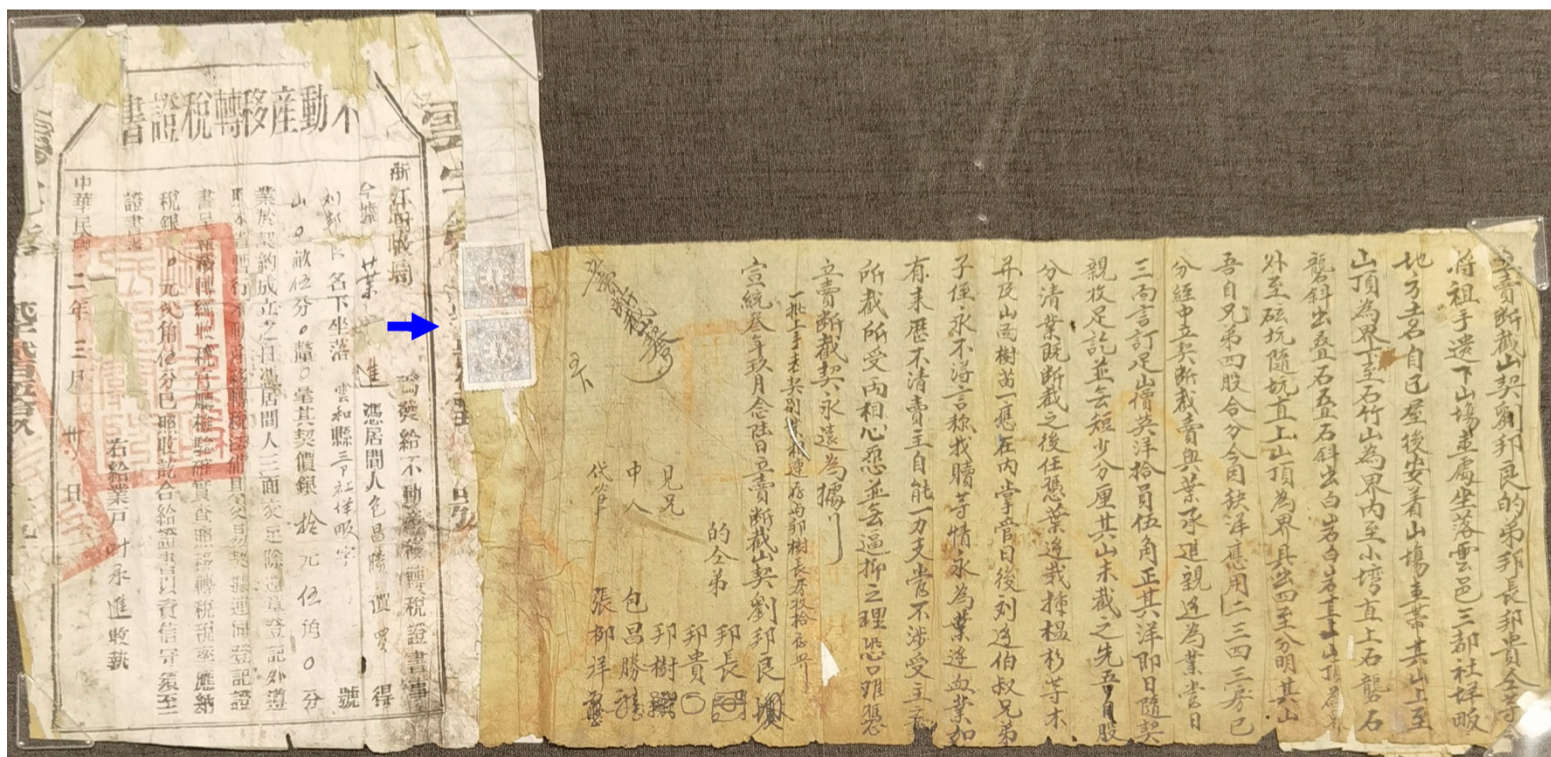 立賣断截山契劉邦良的弟邦長邦貴仝等
將祖手遺下山塲壹處坐落雲邑三都社垟畈
地方土名自己屋後安着山塲壹帯其山上至
山頂為界下至石竹山為界內至小塆直上石礱石
礱斜出叠石叠石斜出白岩白岩直上山頂為界
外至砿坑隨坑直上山頂為界具出四至分明其山
吾自兄弟四股合分今因缺洋應用二三四三房已
分經中立契断截賣與葉承進親邊為業當日
三面言訂足山價英洋拾員伍角正其洋即日隨契
親收足訖並無短少分厘其山未截之先吾自股
分清業既断截之後任憑葉邊栽揷榅杉等木
并及山雨樹苗一應在內掌管日後刘邊伯叔兄弟
子侄永不淂言称找贖等情永為葉邊血業如
有来歷不清賣主自能一力支當不涉受主之
所截所受両相心愿並無逼抑之理恐口难憑
立賣断截契永遠為據
一批上手老契別業相連存邦樹長房收拾存照
宣統叁年玖月念陸日立賣断截山契劉邦良
的仝弟 邦長
邦貴
見兄 邦樹
中人 包昌勝
代筆 張柳垟
不動産移轉稅證書
浙江國稅廳
為發給不動產移轉稅證書事
今據 葉 進 憑居間人包昌勝 價買 得
刘邦良名下坐落 雲和縣三都社垟畈字 號
山 0 畝伍分 0 釐 0 毫其契價銀 拾 元 伍 角 0 分
業於契約成立之日憑居間人三面交足除遵章登記外遵
照本省暫行不動產移轉稅法備具交易契據連同登記證
書呈
稅銀 0 元弍角伍分已照收訖合給證書以資信守須至
證書者
右給業戶 叶承進收執
中華民國二年三月卅日